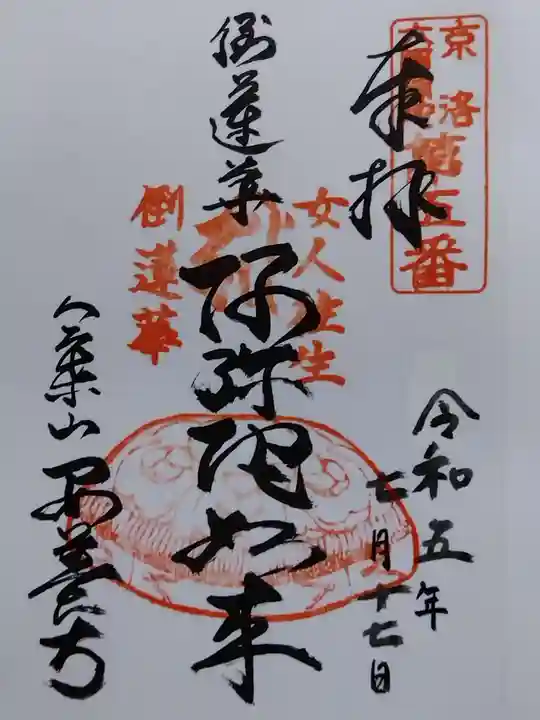 京洛
第五番
奉拝
令和五年
七月十七日
女人往生
倒蓮華
倒蓮華
阿弥陀如来
安養寺